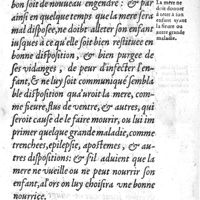 bon soit de nouueau engendré : & par
ainsi en quelque temps que la mere sera
mal disposee, ne doibt alleter son enfant
iusques à ce qu'elle soit bien restituee en
bonne disposition, & bien purgee de
ses vidanges, de peur d'infecter l'en-
fant, & ne luy soit communiqué sembla
ble disposition qu'aurait la mere, com-
me fieure, flus de ventre, & autres, qui
seroit cause de le faire mourir, ou lui im
primer quelque grande maladie, comme
trenchees, epilepsie, apostemes, & au-
tres dispositions: & s'il aduient que la
mere ne vueille ou ne peut nourrir son
enfant, alors on luy choisira vne bonne
nourrice.
La mere ne
doit donner
à teter à son
enfant ayant
la fieure ou
autre grande
maladie.